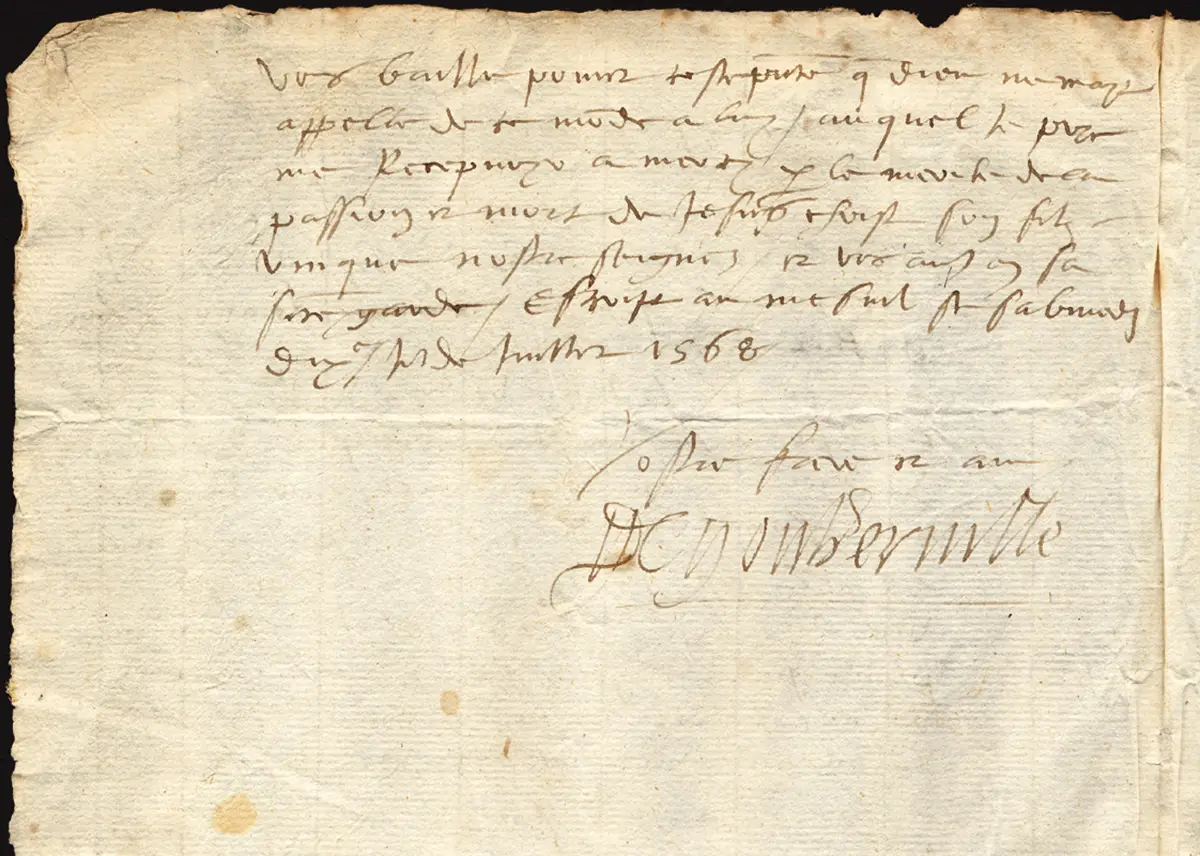 vos baille pouier ceste pnte q dieu ne mayt
appelle de ce mõde a luy / auquel je prye
me Recepvoyr a mercy p le merite de la
passion et mort de Jesus christ son filz
unique nostre seigneur / et vos ayt en sa
ste garde / Escript au mesnil se sabmedi
dixe jor de Juillet 1568
Vostre frere et amy
De gouberville